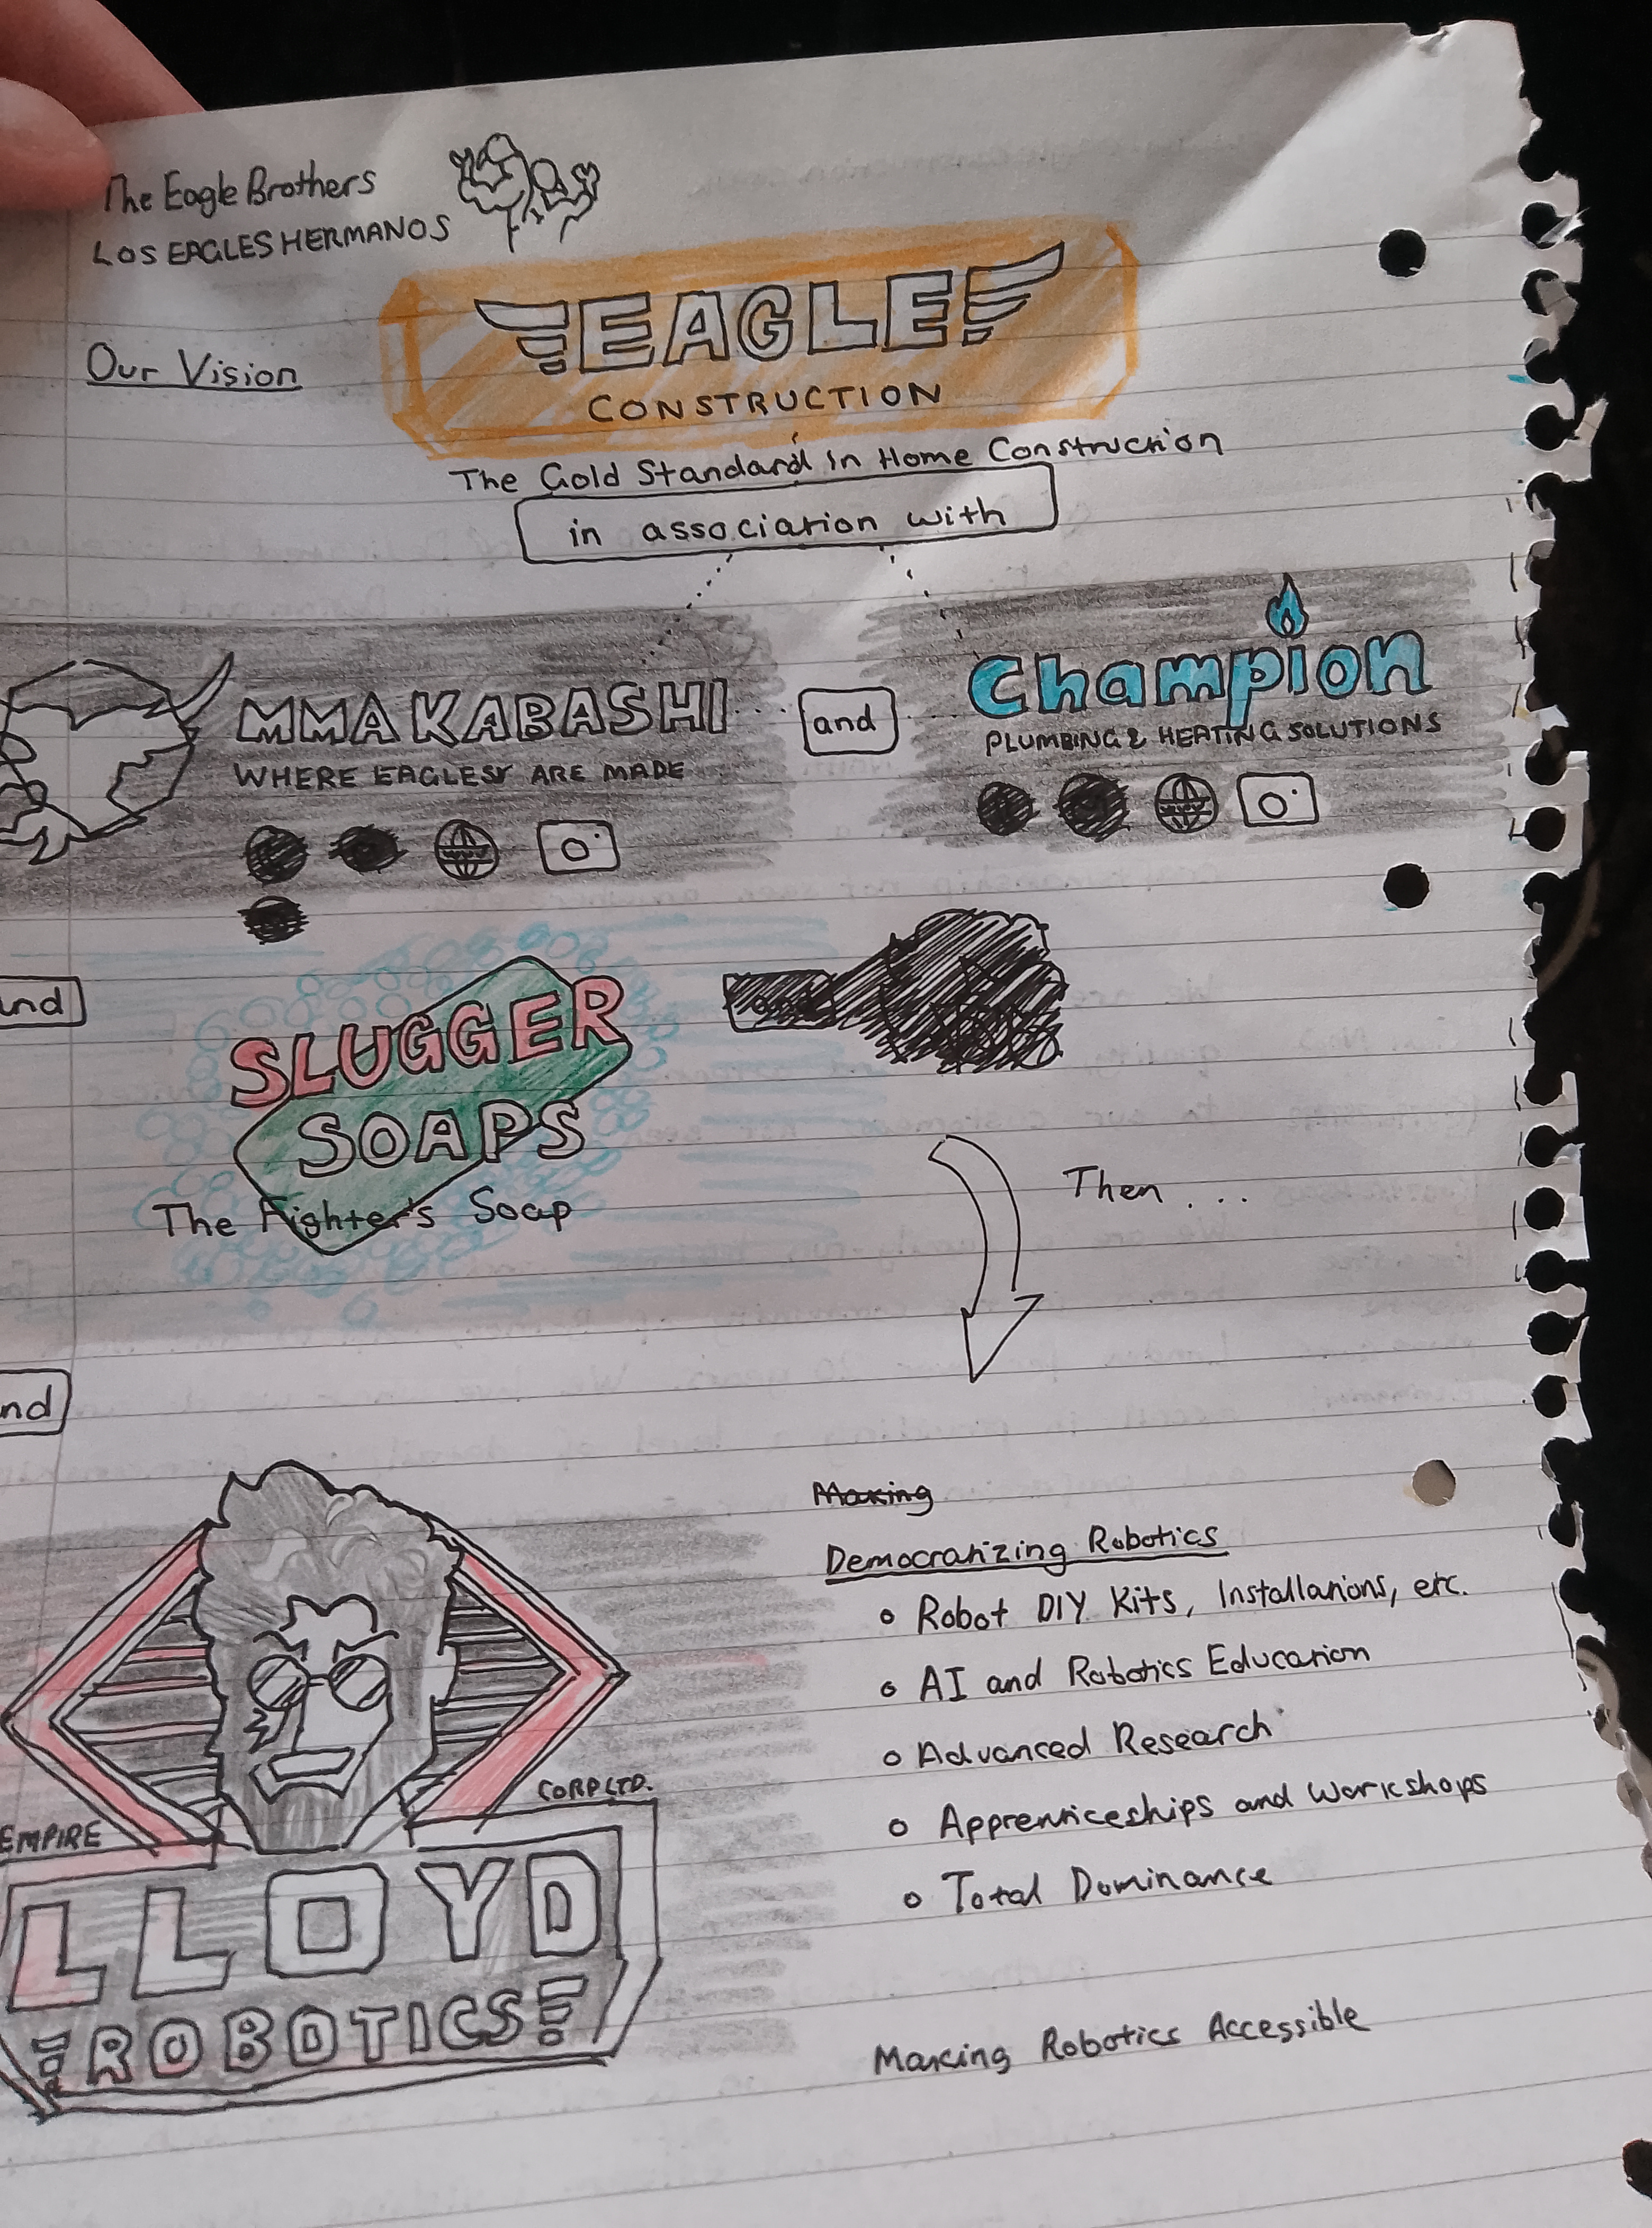 The Eagle Brothers
LOS EAGLES HERMANOS
Our Vision
EAGLE
CONSTRUCTION
The Gold Standard in Home Construction
in association with
MMA KABASHI
WHERE EAGLES ARE MADE
and
Champion
PLUMBING & HEATING SOLUTIONS
www
www
and
SLUGGER
SOAPS
The Fighter's Soap
Then ...
nd
Making
Democratizing Robotics
Robot DIY Kits, Installations, etc.
AI and Robotics Education
Advanced Research
Apprenticeships and Workshops
Total Dominance
EMPIRE
CORP LTD.
LLOYD
ROBOTICS
Making Robotics Accessible